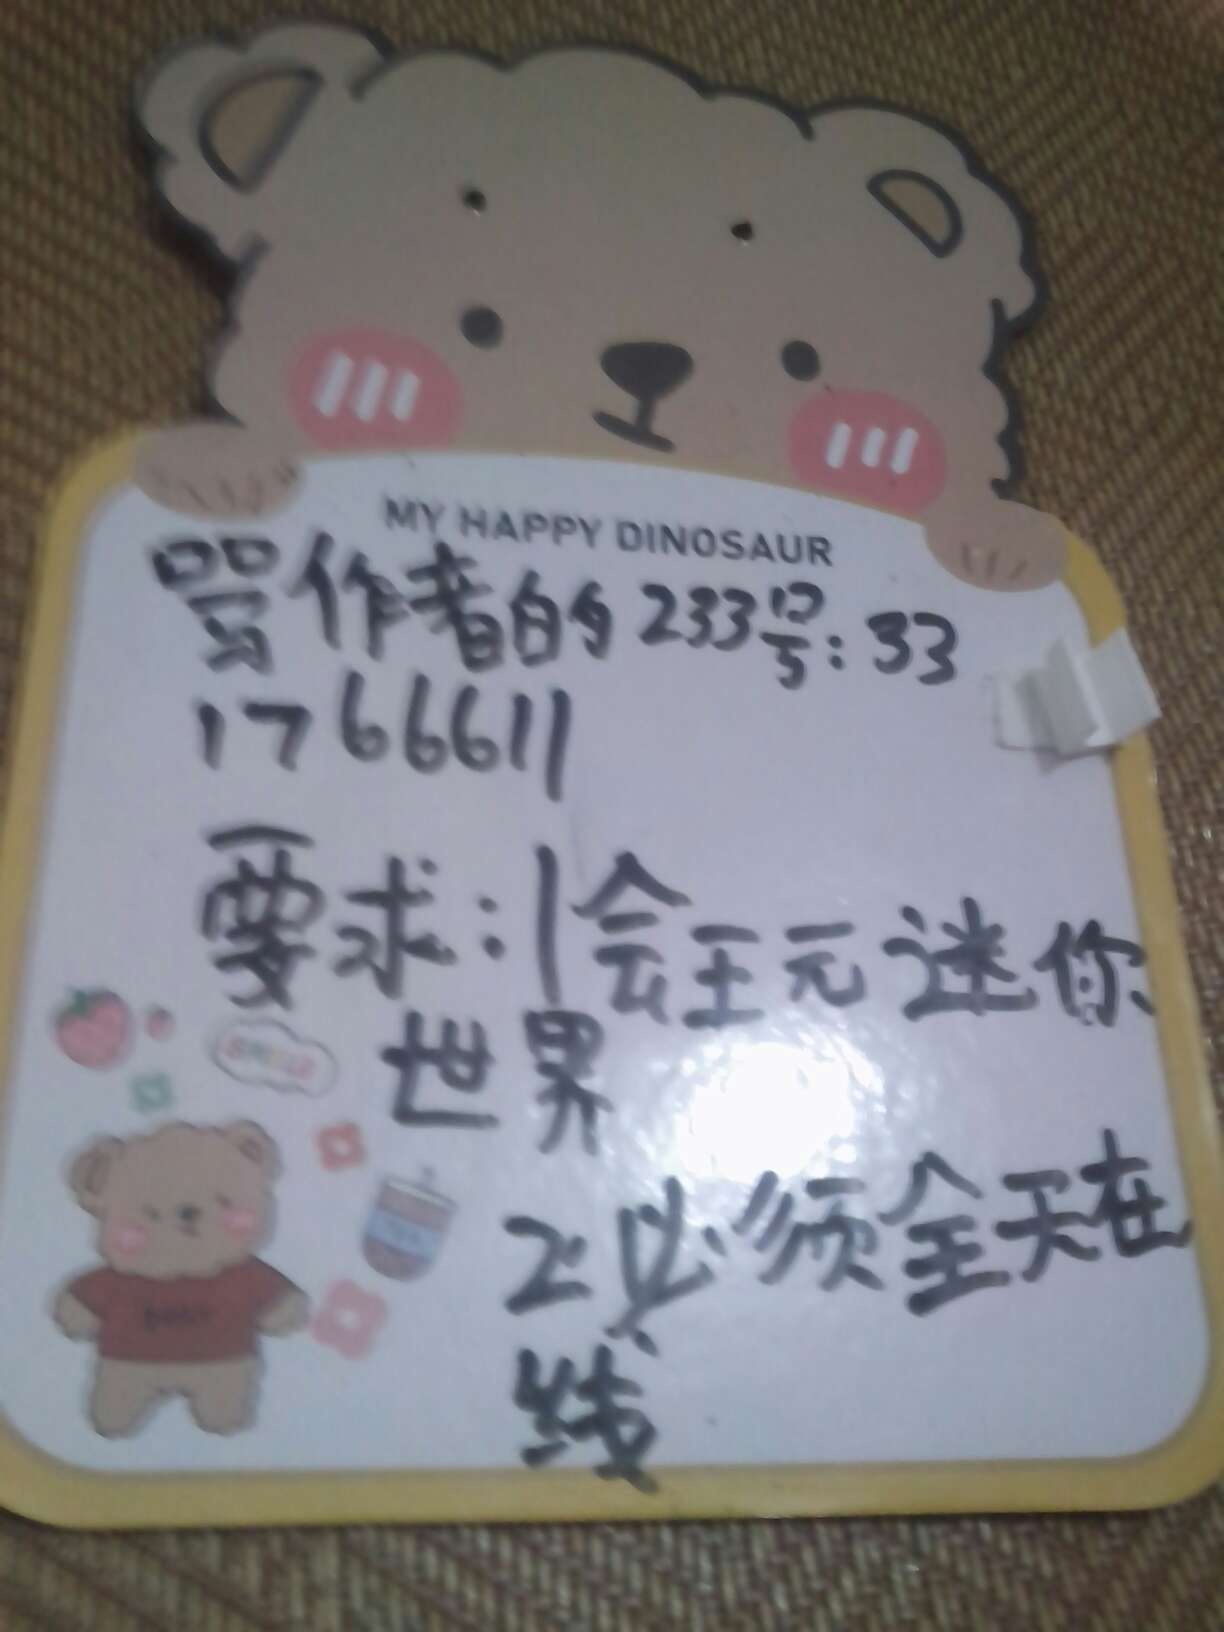 MY HAPPY DINOSAUR
骂作者的233号:33
1766611
要求:1会王元迷你
世界
2必须全天在
线